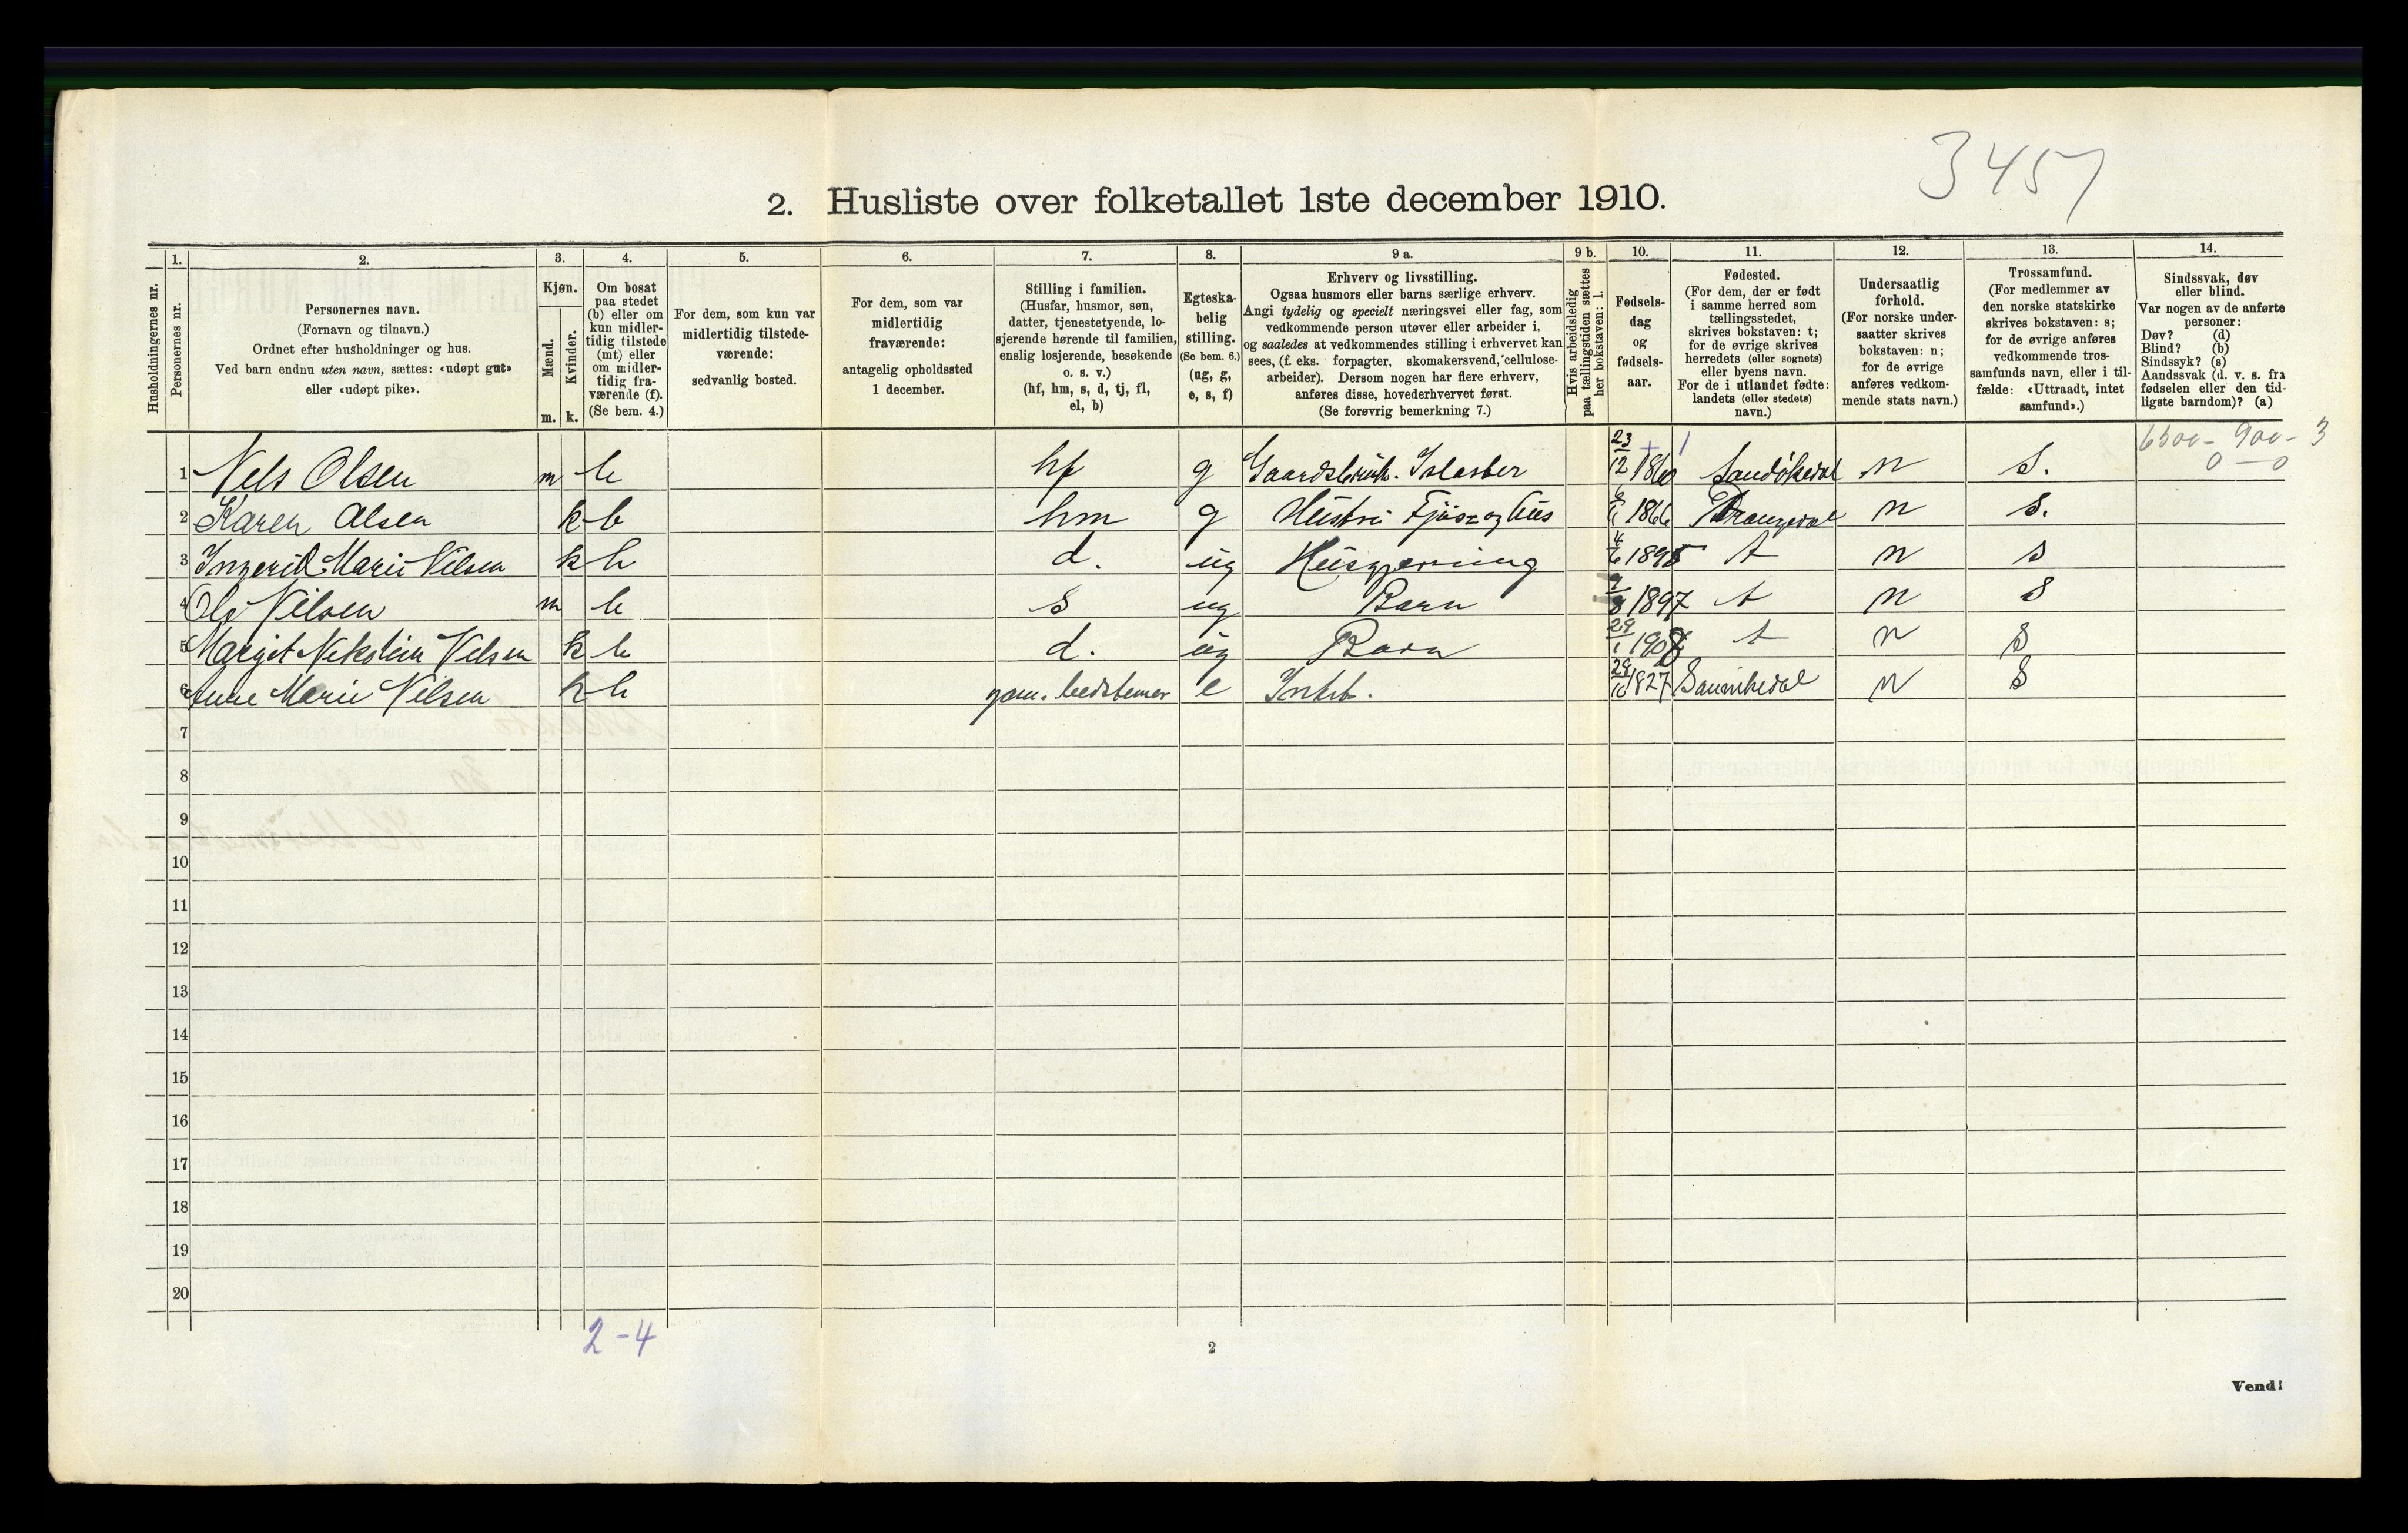 3457
2. Husliste over folketallet 1ste december 1910.
1. 2. 3. 4. 5. 6. 7. 8. 9 a. 9 b. 10. 11. 12. 13. 14.
Husholdningernes nr.
Personernes nr.
Personernes navn.
(Fornavn og tilnavn.)
Ordnet efter husholdninger og hus.
Ved barn endnu uten navn, sættes: «udøpt gut»
eller «udøpt pike».
Kjøn.
Mænd.
Kvinder.
m. k.
Om bosat
paa stedet
(b) eller om
kun midler-
tidig tilstede
(mt) eller
om midler-
tidig fra-
værende (f).
(Se bem. 4.)
For dem, som kun var
midlertidig tilstede-
værende:
sedvanlig bosted.
For dem, som var
midlertidig
fraværende:
antagelig opholdssted
1 december.
Stilling i familien.
(Husfar, husmor, søn,
datter, tjenestetyende, lo-
sjerende hørende til familien,
enslig losjerende, besøkende
o. s. v.)
(hf, hm, s, d, tj, fl,
el, b)
Egteska-
belig
stilling.
(Se bem. 6.)
(ug, g,
e, s, f)
Erhverv og livsstilling.
Ogsaa husmors eller barns særlige erhverv.
Angi tydelig og specielt næringsvei eller fag, som
vedkommende person utøver eller arbeider i,
og saaledes at vedkommendes stilling i erhvervet kan
sees, (f. eks. forpagter, skomakersvend, cellulose-
arbeider). Dersom nogen har flere erhverv,
anføres disse, hovederhvervet først.
(Se forøvrig bemerkning 7.)
Hvis arbeidsledig
paa tællingstiden sættes
her bokstaven: l.
Fødsels-
dag
og
fødsels-
aar.
Fødested.
(For dem, der er født
i samme herred som
tællingsstedet,
skrives bokstaven: t;
for de øvrige skrives
herredets (eller sognets)
eller byens navn.
For de i utlandet fødte:
landets (eller stedets)
navn.)
Undersaatlig
forhold.
(For norske under-
saatter skrives
bokstaven: n;
for de øvrige
anføres vedkom-
mende stats navn.)
Trossamfund.
(For medlemmer av
den norske statskirke
skrives bokstaven: s;
for de øvrige anføres
vedkommende tros-
samfunds navn, eller i til-
fælde: «Uttraadt, intet
samfund».)
Sindssvak, døv
eller blind.
Var nogen av de anførte
personer:
Døv? (d)
Blind? (b)
Sindssyk? (s)
Aandssvak (d. v. s. fra
fødselen eller den tid-
ligste barndom)? (a)
6500 - 900 - 3
0 - 0
1 Nels Olsen m b hf g 23/12 1860 n s.
2 Karen Olsen k b hm g Hustru Fjøs og hus 1866 Drangedal n s.
3 Ingerid Marie Nilsen k b d. ug Husgjerning 4/6 1895 t n s
4 Olf Nilsen m b s ug Barn 1897 t n s
5 Margit Nikoline Nelsen k b d. ug Barn 29/1 1908 t n s
6 Anne Marie Nilsen k b gam. bedstemor e 28/10 1827 Sannikedal n s
7
8
9
10
11
12
13
14
15
16
17
18
19
20
2 - 4
2
Vend!